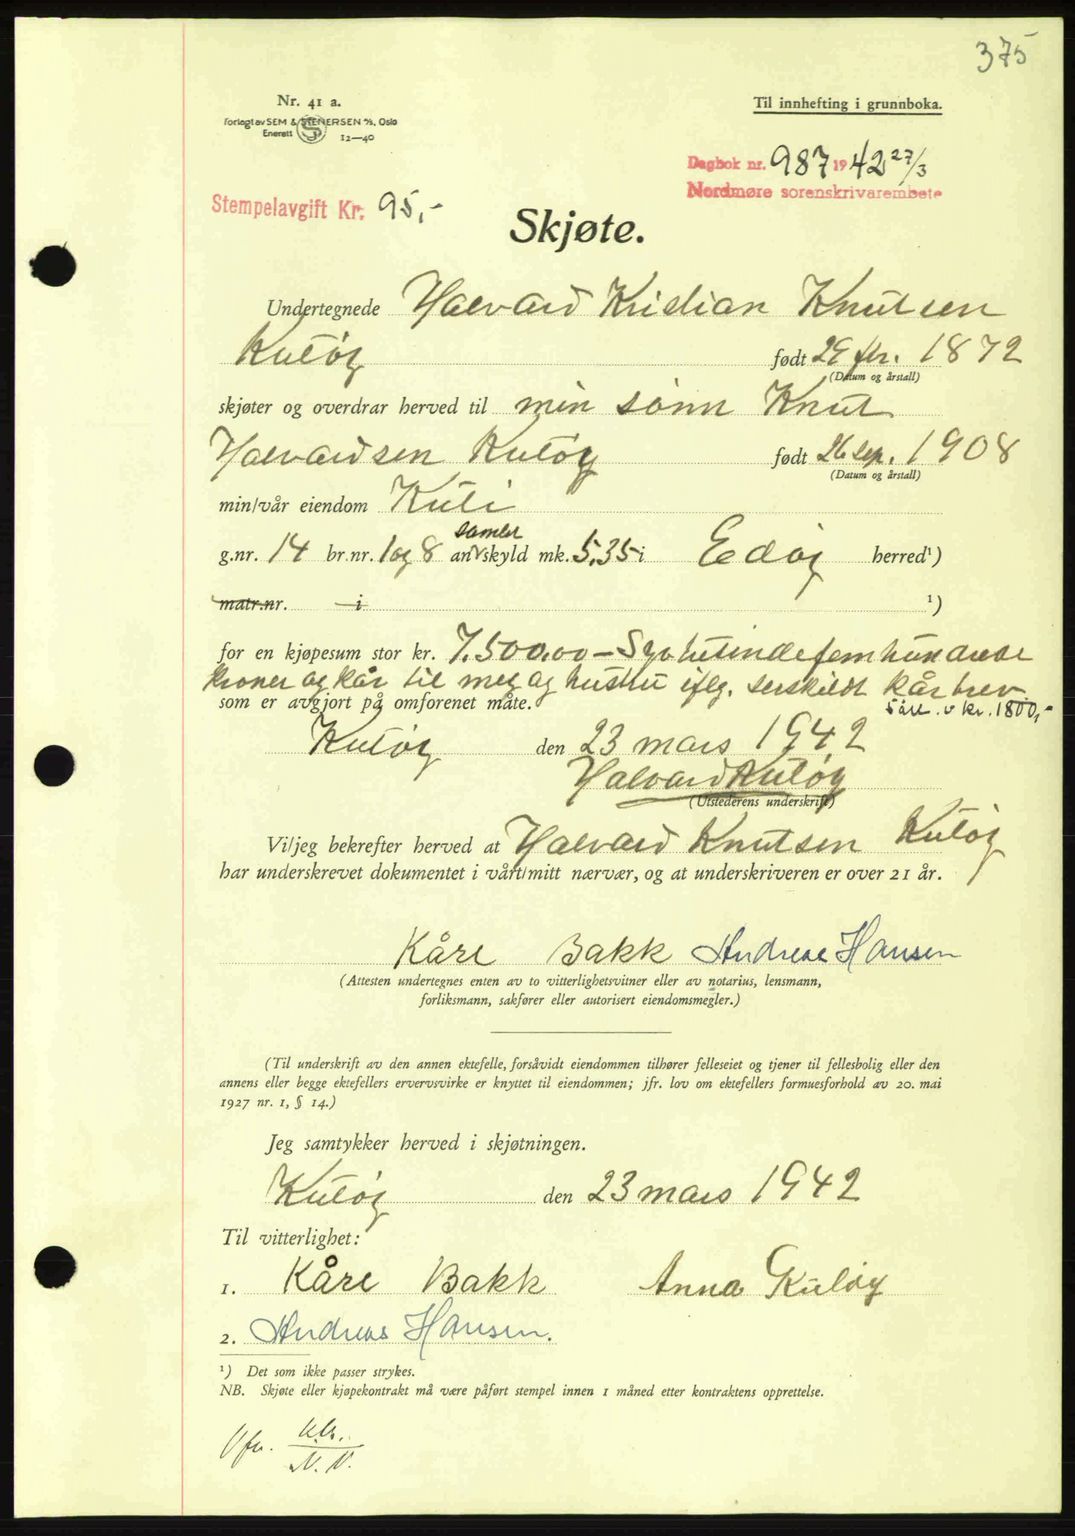 375
Nr. 41 a.
Forlagt av SEM & STENERSEN A/S, Oslo
Enerett 12—40
Til innhefting i grunnboka.
Dagbok nr. 987 1942 27/3
Nordmøre sorenskrivarembete
Stempelavgift Kr. 95,-
Skjøte.
Undertegnede Halvard Kristian Knutsen
Kuløy født 29 fbr. 1872
(Datum og årstall)
skjøter og overdrar herved til min sønn Knut
Halvardsen Kuløy født 26 sep. 1908
(Datum og årstall)
min/vår eiendom Kuli
samlet
g.nr. 14 br.nr. 1 og 8 av skyld mk. 5,35 i Edøy herred¹)
matr.nr. i ¹)
for en kjøpesum stor kr. 7.500,00 — Syvtusindefemhundrede
kroner og kår til meg og hustru iflg. serskildt kårbrev
som er avgjort på omforenet måte. 5 årl. v kr. 1800,-
Kuløy den 23 mars 1942
Halvard Kuløy
(Utstederens underskrift)
Vi/jeg bekrefter herved at Halvard Knutsen Kuløy
har underskrevet dokumentet i vårt/mitt nærvær, og at underskriveren er over 21 år.
Kåre Bakk Andreas Hansen
(Attesten undertegnes enten av to vitterlighetsvitner eller av notarius, lensmann,
forliksmann, sakfører eller autorisert eiendomsmegler.)
(Til underskrift av den annen ektefelle, forsåvidt eiendommen tilhører felleseiet og tjener til fellesbolig eller den
annens eller begge ektefellers ervervsvirke er knyttet til eiendommen; jfr. lov om ektefellers formuesforhold av 20. mai
1927 nr. 1, § 14.)
Jeg samtykker herved i skjøtningen.
Kuløy den 23 mars 1942
Til vitterlighet:
1. Kåre Bakk Anna Kuløy
2. Andreas Hansen.
¹) Det som ikke passer strykes.
NB. Skjøte eller kjøpekontrakt må være påført stempel innen 1 måned etter kontraktens opprettelse.